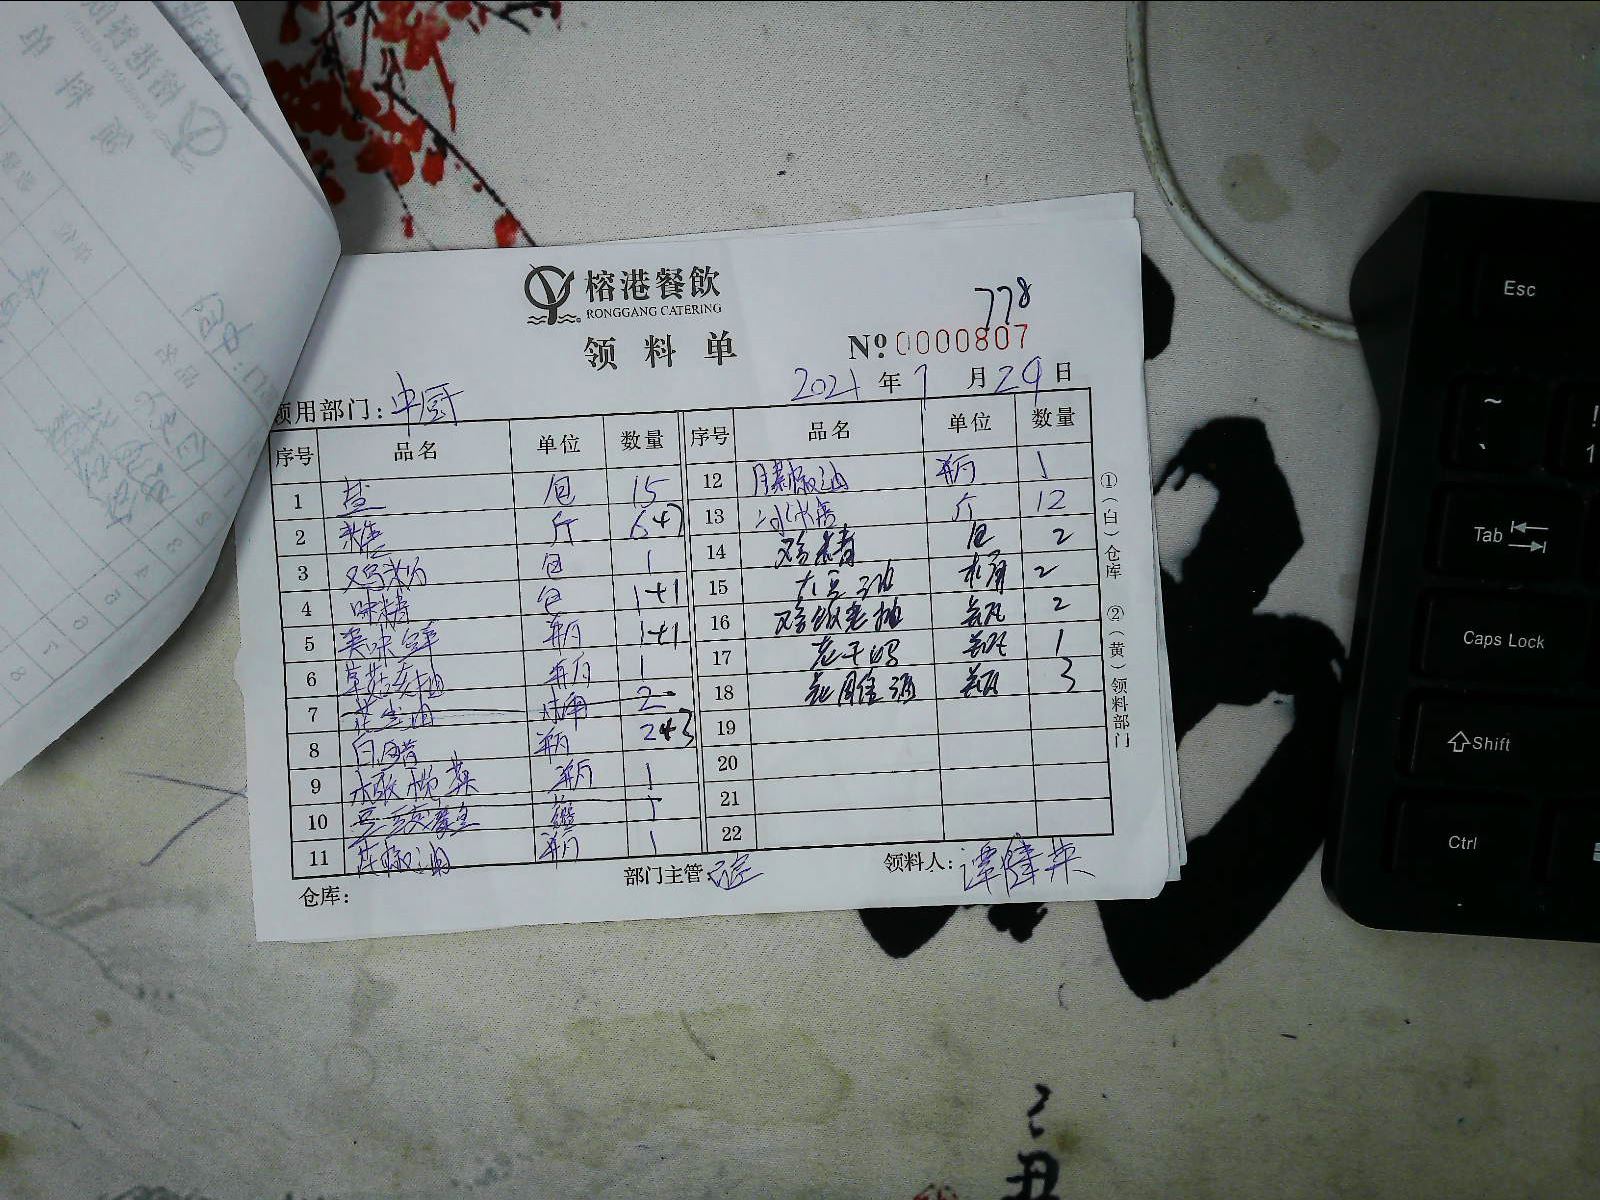 榕港餐飲
RONGGANG CATERING
领料单
778
Nº 0000807
领用部门：中厨
2021年7月29日
序号 品名 单位 数量
1 盐 包 15
2 糖 斤 6+7
3 鸡粉 包 1
4 味精 包 1+1
5 美味鲜 瓶 1+1
6 草菇老抽 瓶 1
7 花生油 2
8 白醋 瓶 2+3
9 橄榄菜 瓶 1
10 1
11 花椒油 瓶 1
序号 品名 单位 数量
12 瓶 1
13 冰糖 斤 12
14 鸡精 包 2
15 大豆油 桶 2
16 老抽 瓶 2
17 老干妈 瓶 1
18 瓶 3
19
20
21
22
①（白）仓库 ②（黄）领料部门
仓库：
部门主管：
领料人：谭
Esc
~
`
!
1
Tab
Caps Lock
Shift
Ctrl